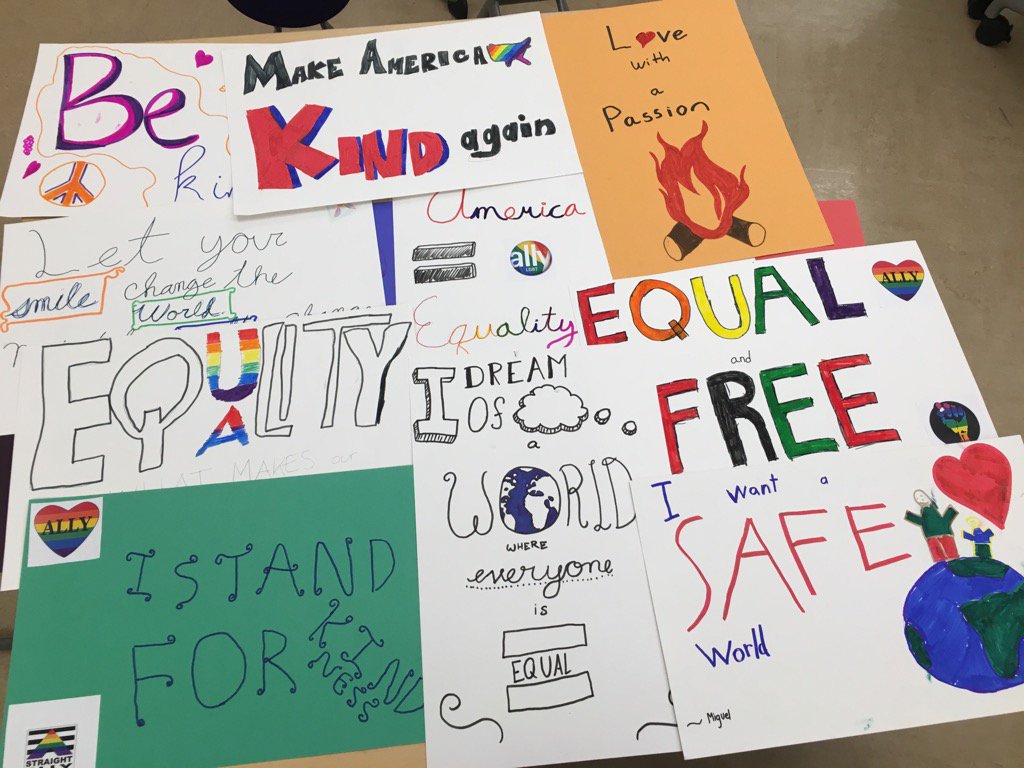 Be
kin
MAKE AMERICA
KIND again
Love
with
a
Passion
Let your
smile change the
World
America
=
ally
LGBT
Equality
EQUALITY
WHAT MAKES our
EQUAL
and
FREE
ALLY
I DREAM
OF
a
WORLD
WHERE
everyone
is
EQUAL
I want a
SAFE
World
~ Miguel
ALLY
I STAND
FOR KINDNESS
STRAIGHT